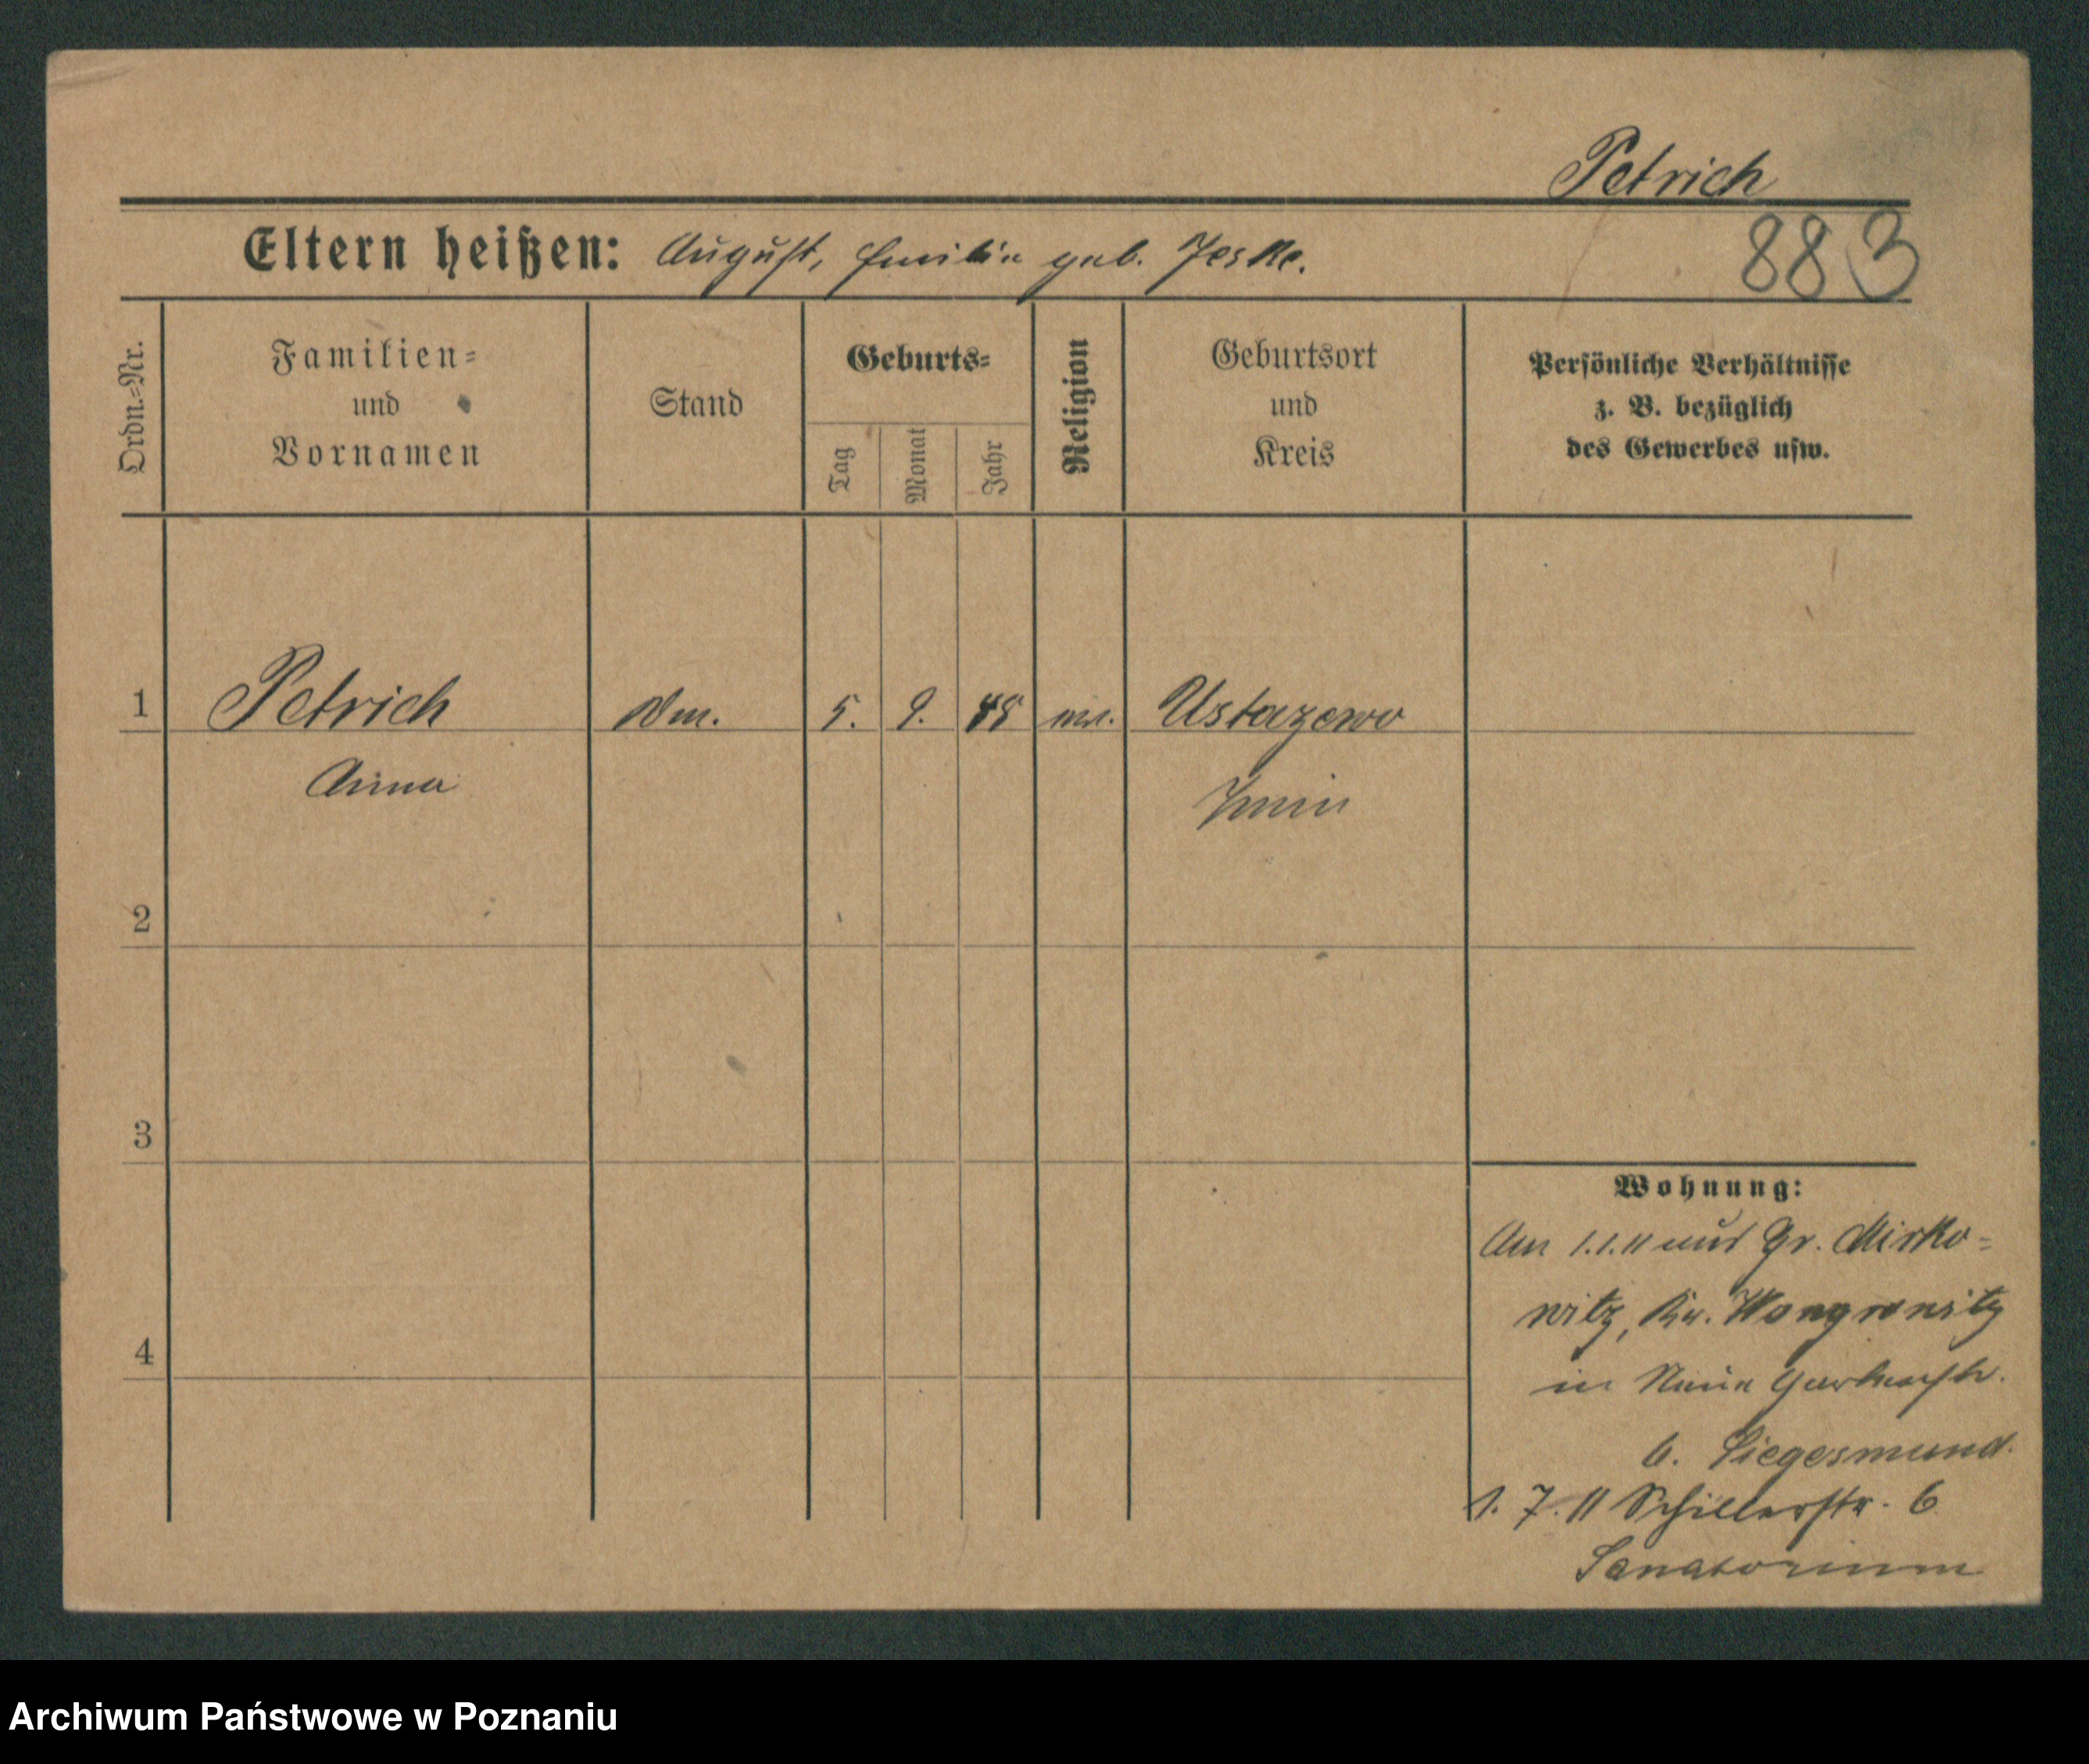 Petrich
Eltern heißen: August, Emilie geb. Jeske.
883
Ordn.-Nr.
Familien-
und
Vornamen
Stand
Geburts-
Tag
Monat
Jahr
Religion
Geburtsort
und
Kreis
Persönliche Verhältnisse
z. B. bezüglich
des Gewerbes usw.
1 Petrich 5. 9. Ustazewo
Anna Znin
2
3
4
Wohnung:
Am 1.1.11 aus Gr. Mirko-
witz, Kr. Wongrowitz
in Neue Gartenstr.
6. Siegesmund.
1. 7. 11 Schillerstr. 6
Sanatorium
Archiwum Państwowe w Poznaniu